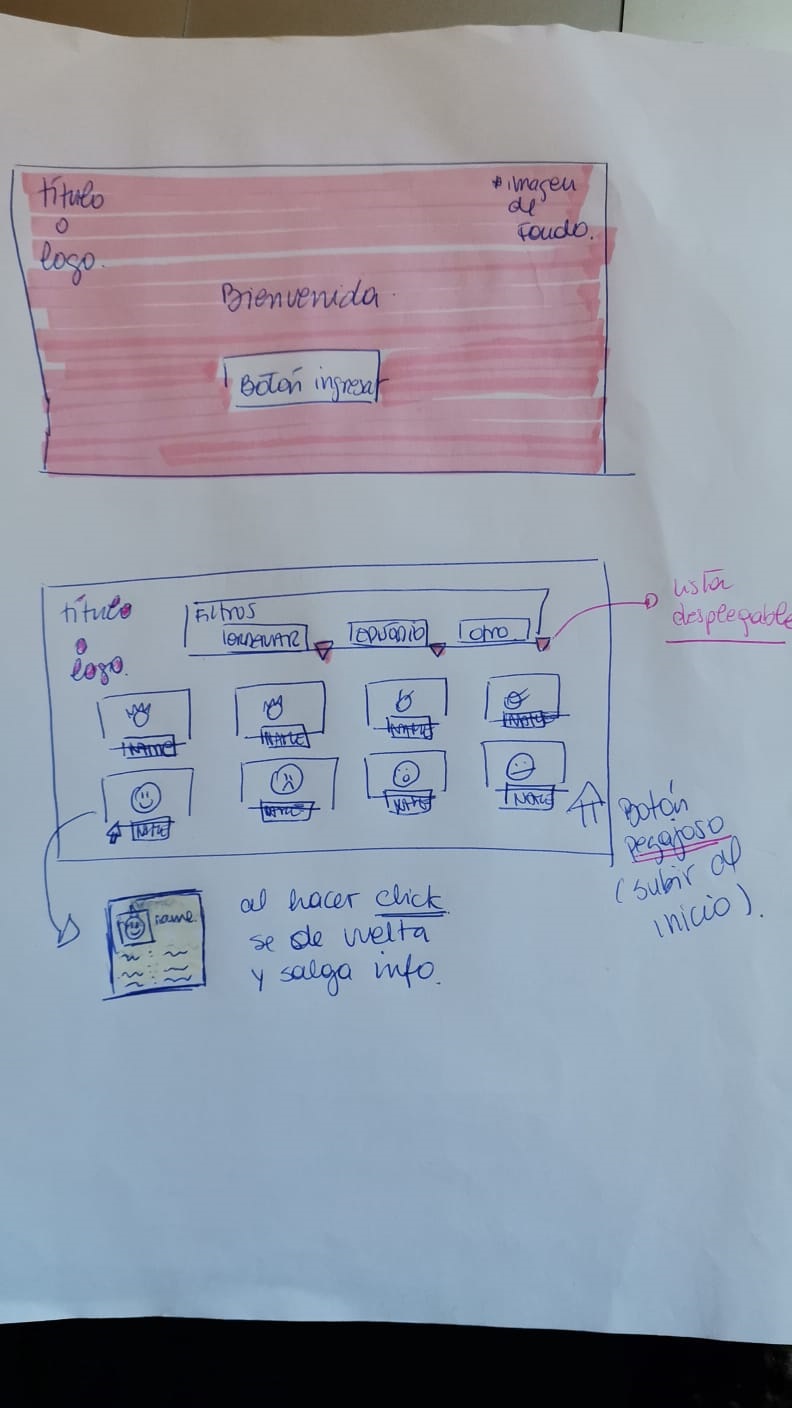 título
o
logo.
*imagen
de
Fondo.
Bienvenida.
Botón ingresar
título
o
logo.
Filtros
ORDENAR
OTRO
lista
desplegable
NAME
NAME
NAME
NAME
NAME
NAME
NAME
NAME
Botón
pegajoso
(subir al
inicio).
name
al hacer click
se de vuelta
y salga info.